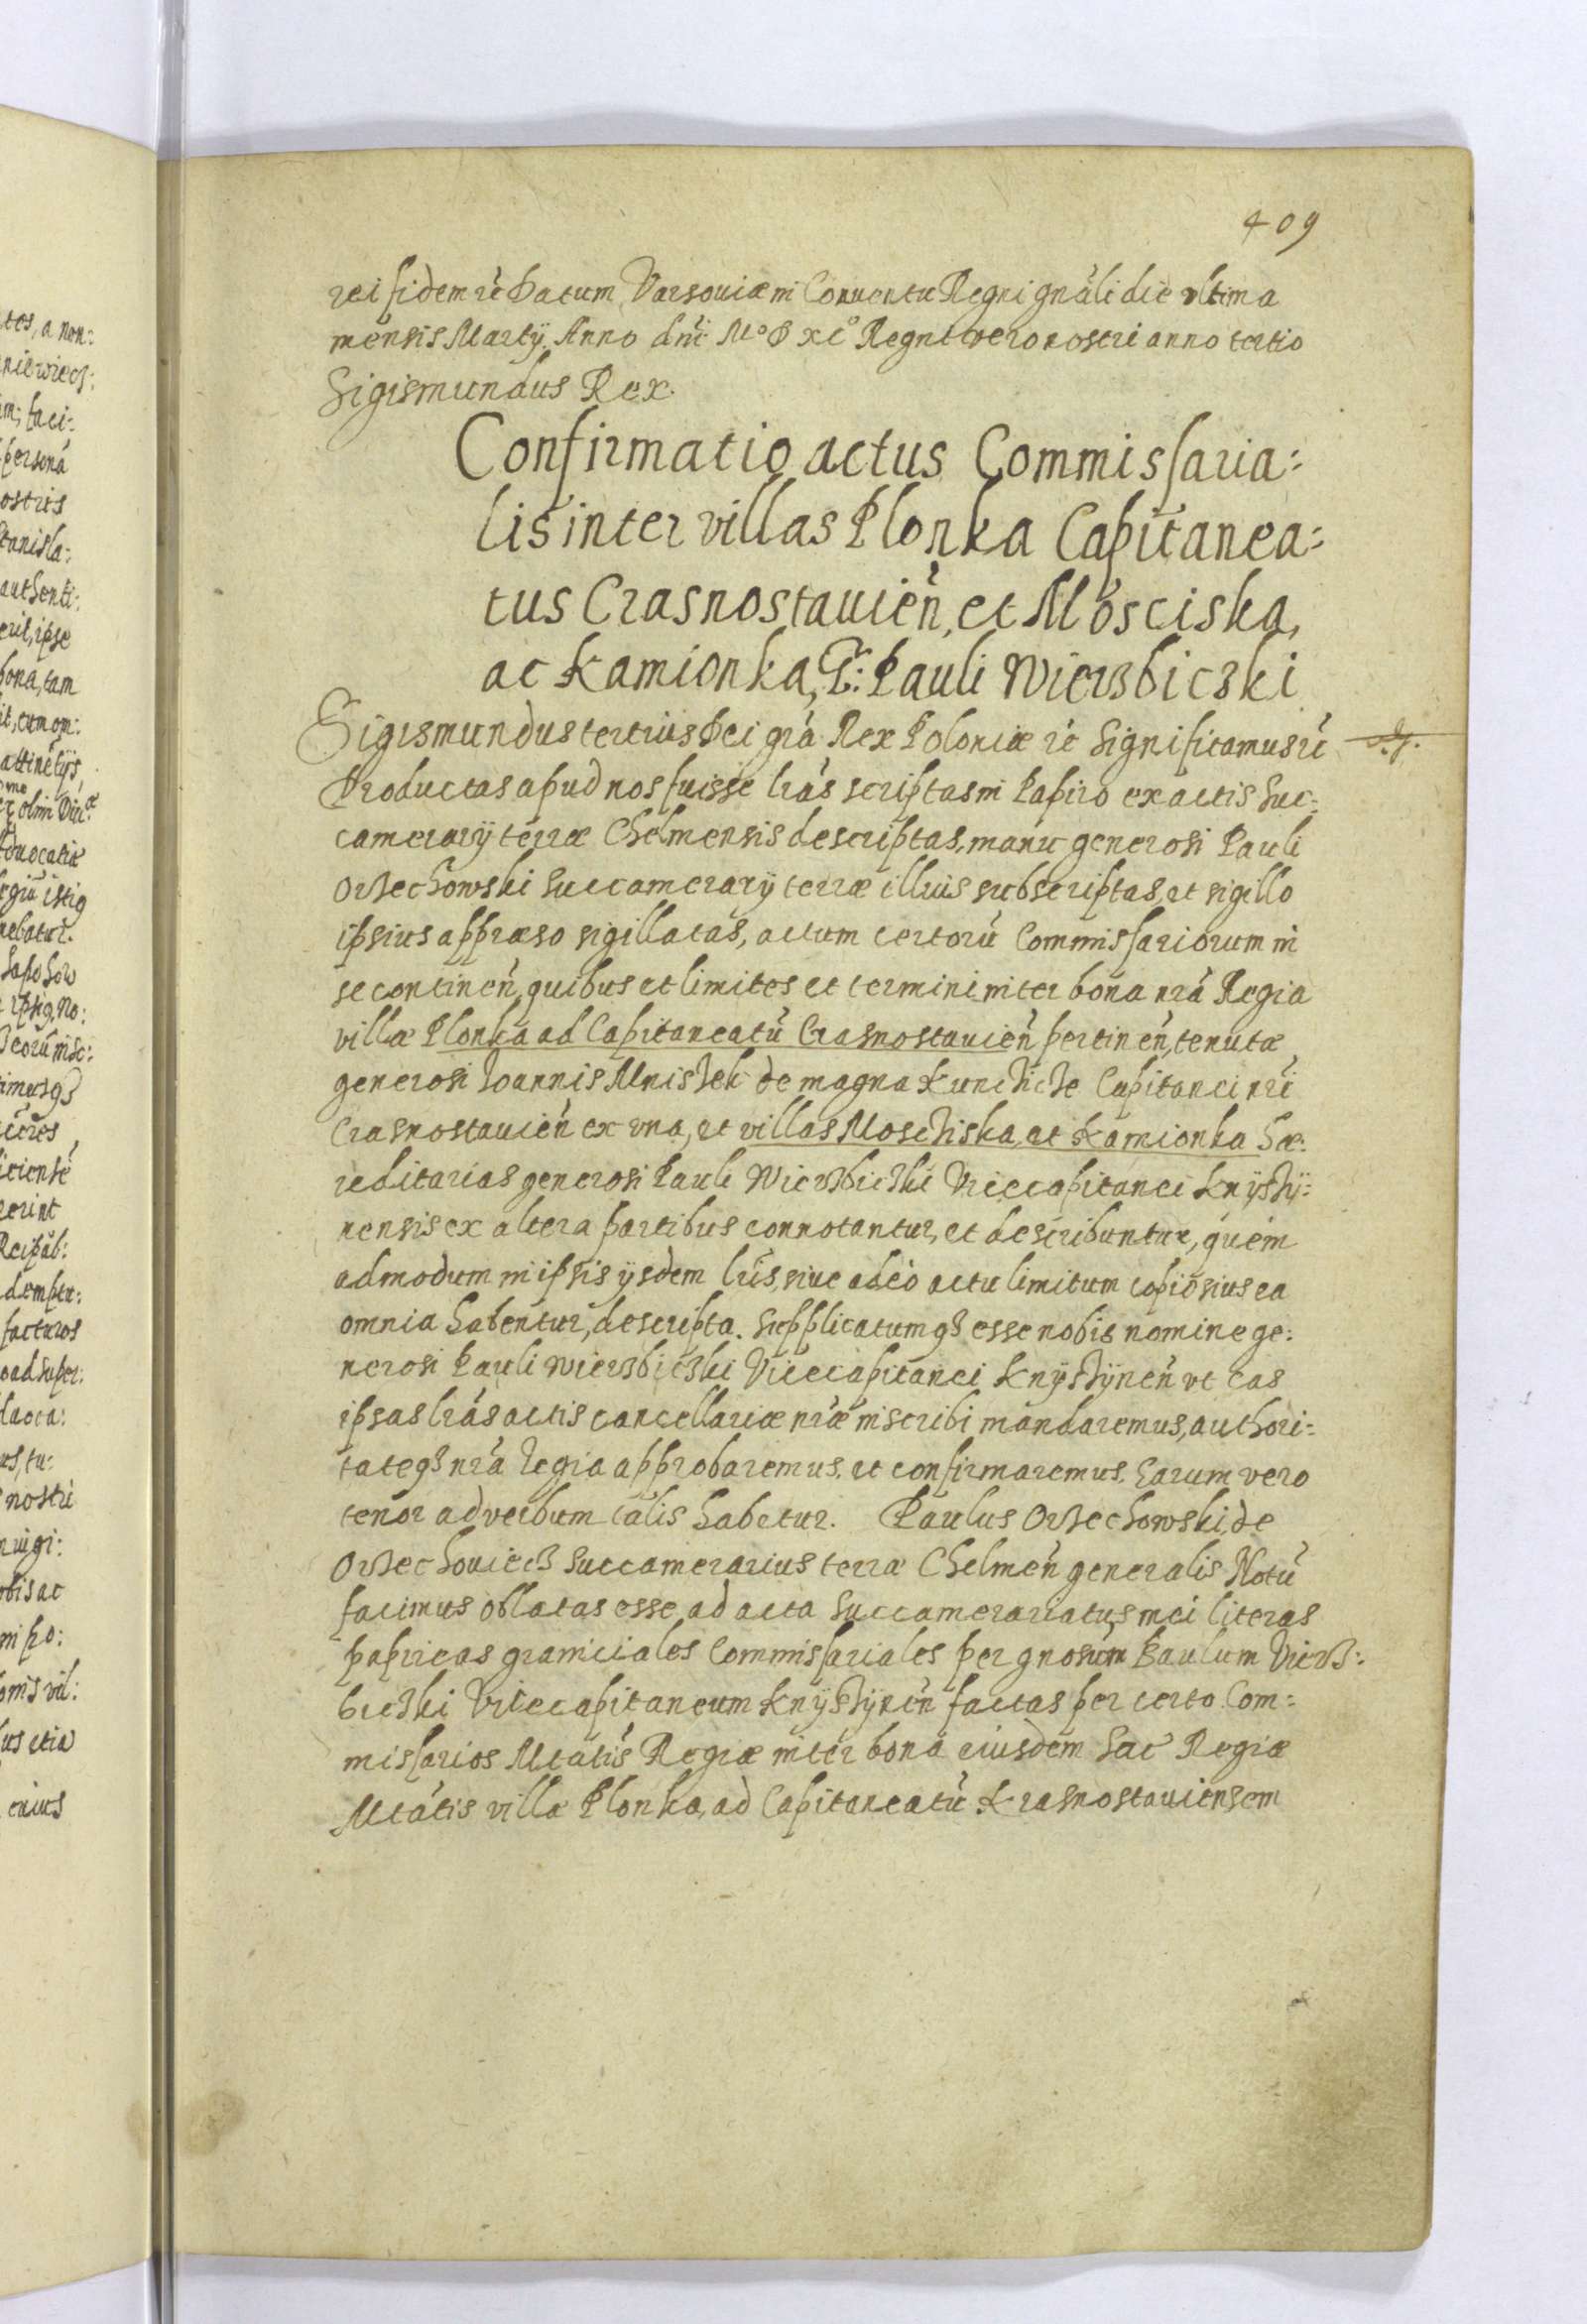 409
rei fidem rc̃ Datum Varsouiæ in Conuentu Regni gnãli die vltima
mensis Martÿ. Anno dni M° D xc° Regni vero nostri anno tertio
Sigismundus Rex.
Confirmatio actus Commissaria:
lis inter villas Plonka Capitanea:
tus Crasnostauień, et Mosciska,
ac Kamionka, G: Pauli Wierzbiczki
Sigismundus tertius Dei grã Rex Poloniæ rc̃ Significamus rc̃
Productas apud nos fuisse lrãs scriptas in Papiro ex actis Suc:
camerarÿ terræ Chelmensis descriptas, manu generosi Pauli
Orzechowski Succamerarÿ terræ illius subscriptas, et sigillo
ipsius appræso sigillatas, actum certorũ Commissariorum in
se contineñ, quibus et limites et termini inter bona nrã Regia
villæ Plonka ad Capitaneatũ Crasnostauieñ pertineñ, tenutæ
generosi Ioannis Mniszek de magna Kunczicze Capitanei nri
Crasnostauieñ ex vna, et villas Moscziska, et Kamionka hæ:
reditarias generosi Pauli Wierzbiczki Vicecapitanei Knÿszÿ:
nensis ex altera partibus connotantur, et describuntur, quem
admodum in ipsis ÿsdem lris, siue adeo actu limitum copiosius ea
omnia habentur, descripta. Supplicatumq3 esse nobis nomine ge:
nerosi Pauli Wierzbiczki Vicecapitanei Knÿszÿneñ vt eas
ipsas lrãs actis cancellariæ nræ inscribi mandaremus, authori:
tateq3 nrã Regia approbaremus, et confirmaremus. Earum vero
tenor ad verbum talis habetur. Paulus Orzechowski, de
Orzechouiecz Succamerarius terræ Chelmeñ generalis Notũ
facimus oblatas esse ad acta Succamerariatus mei literas
papireas graniciales Commissariales per gnosum Paulum Vierz:
biczki Vicecapitaneum Knÿszÿneñ factas per certo Com:
missarios Mtãtis Regiæ inter bona eiusdem Sac̃ Regiæ
Mtãtis villæ Plonka, ad Capitaneatũ Krasnostauiensem